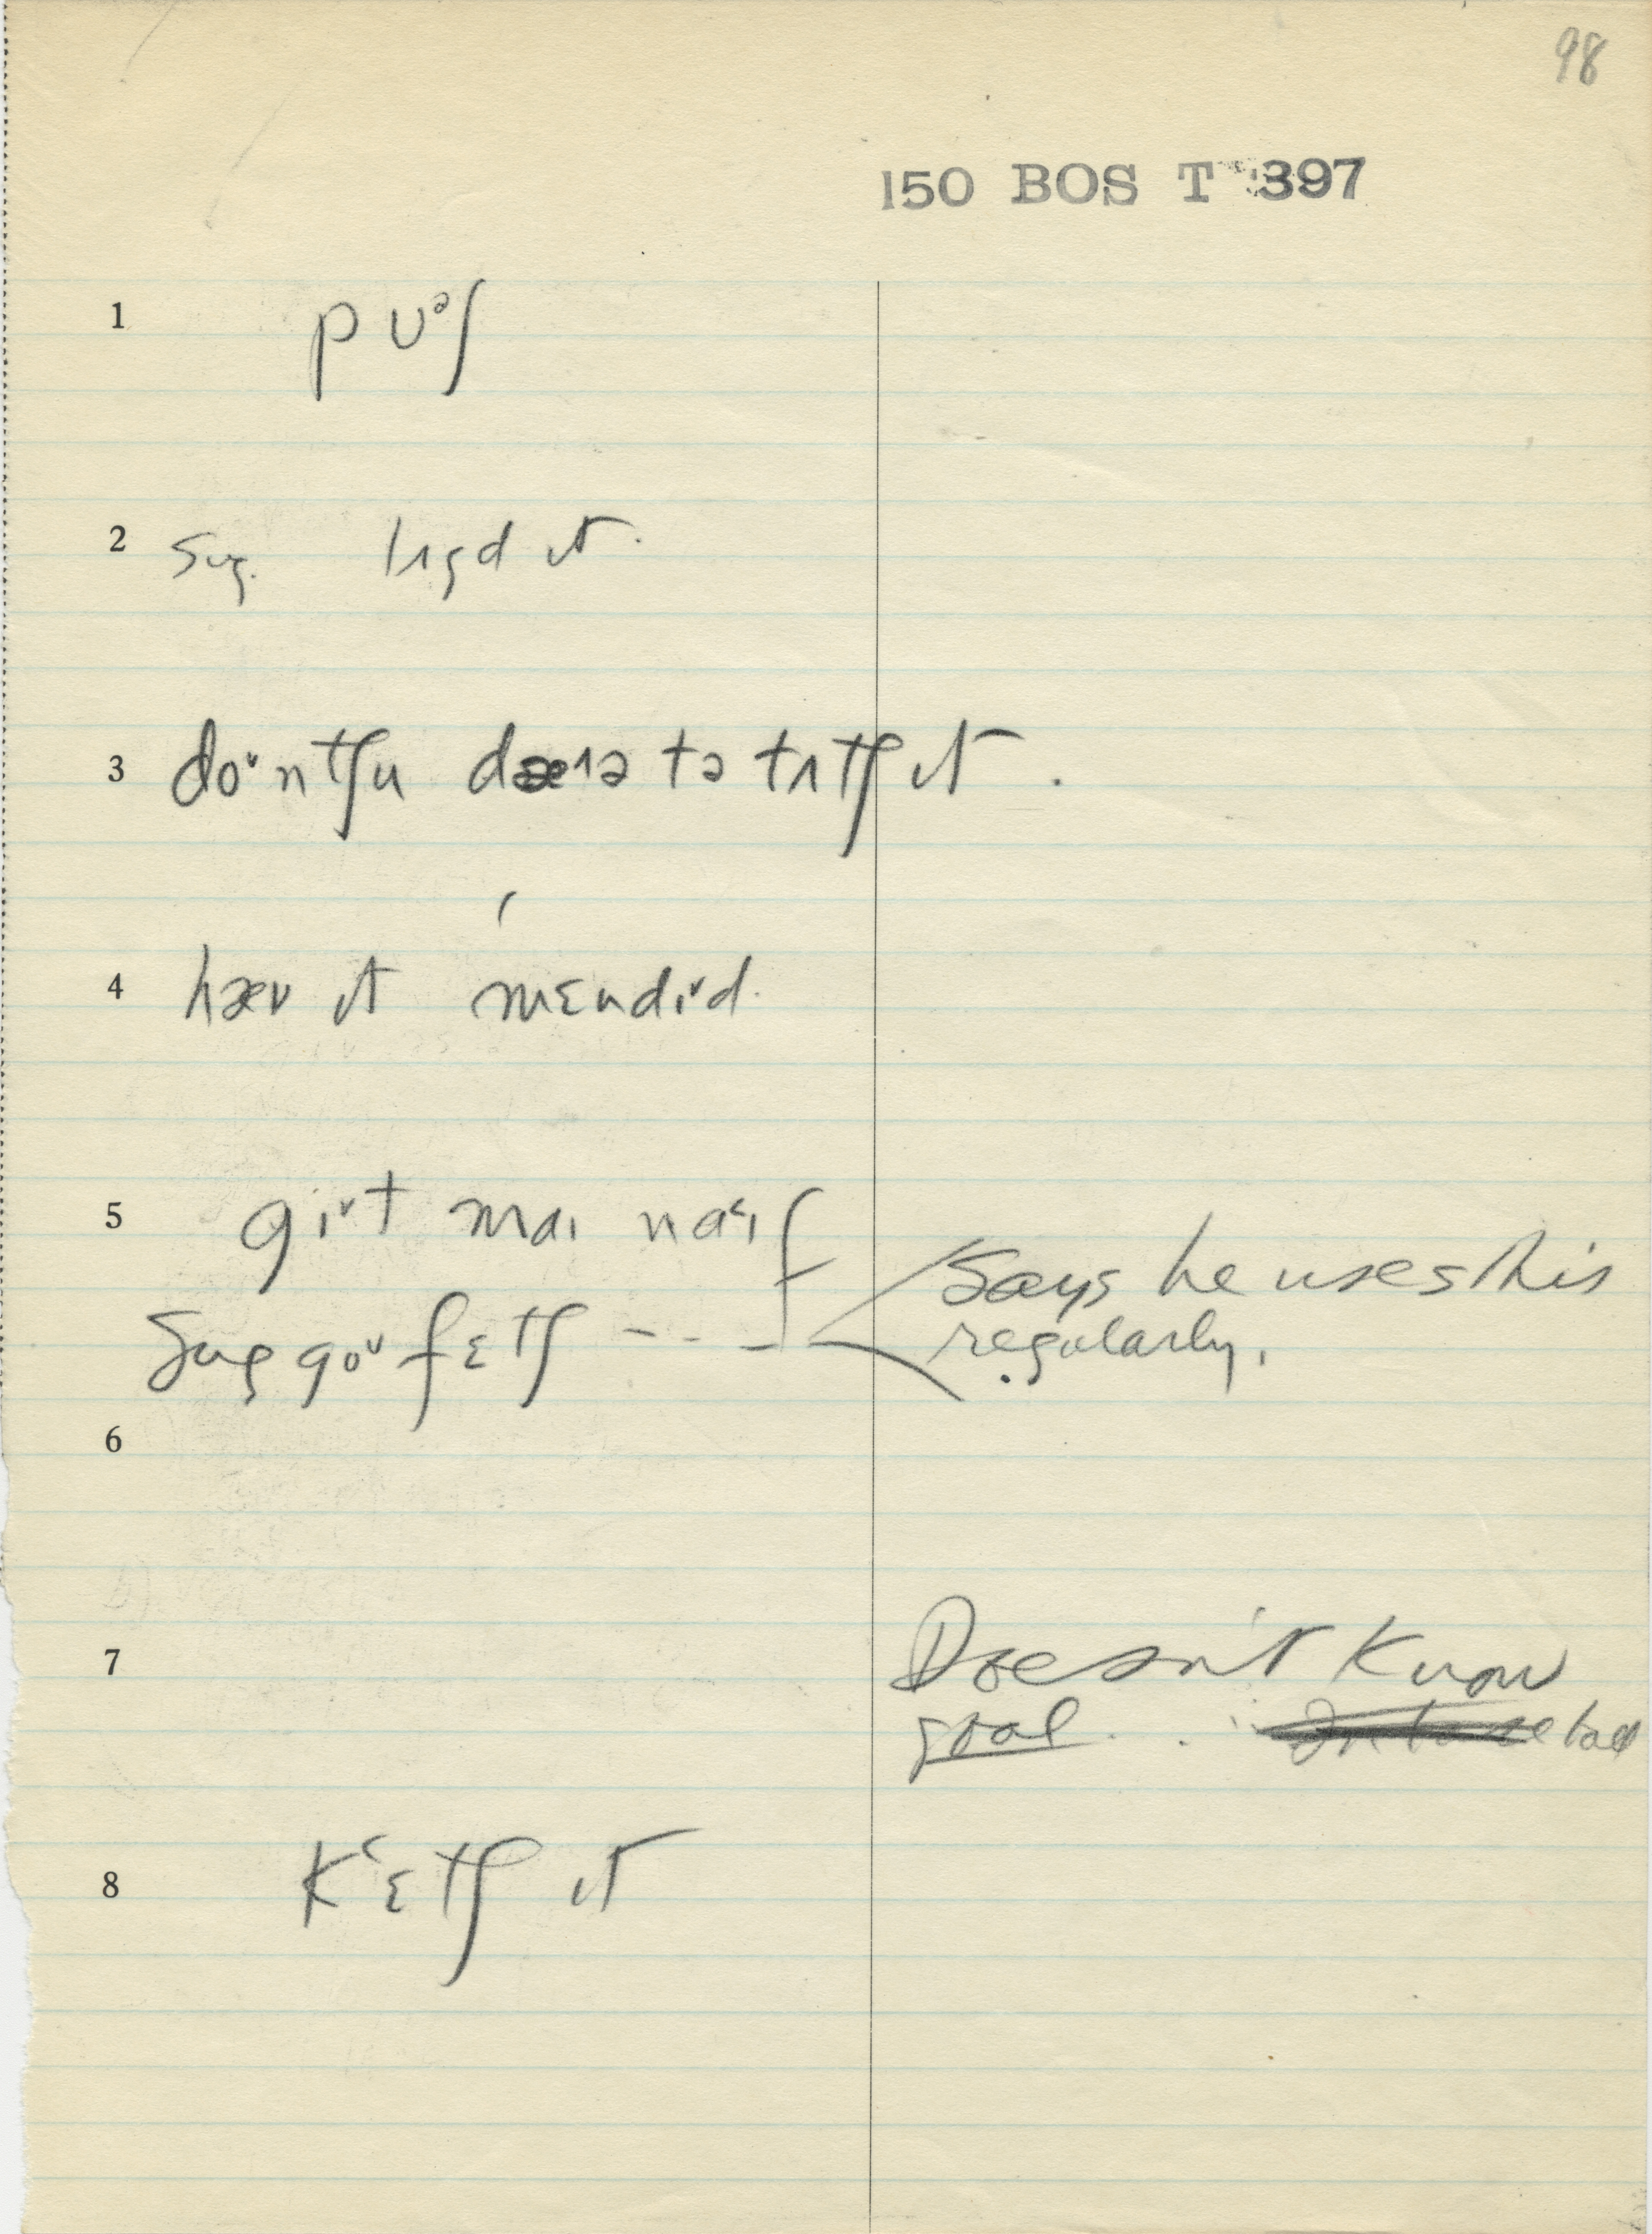 98
150 BOS T 397
1 pʊᵊʃ
2 sug. lɪgd ɪt.
3 doˇntʃu dæɪə tə tʌtʃ ɪt.
4 hæv ɪt mɛndɪˇd.
5 gɪˇt maɪ naɪf
Says he uses this
sug goˇ fɛtʃ ---
regularly.
6
7 Doesn't know
goal.
8 kʿɛtʃ ɪt